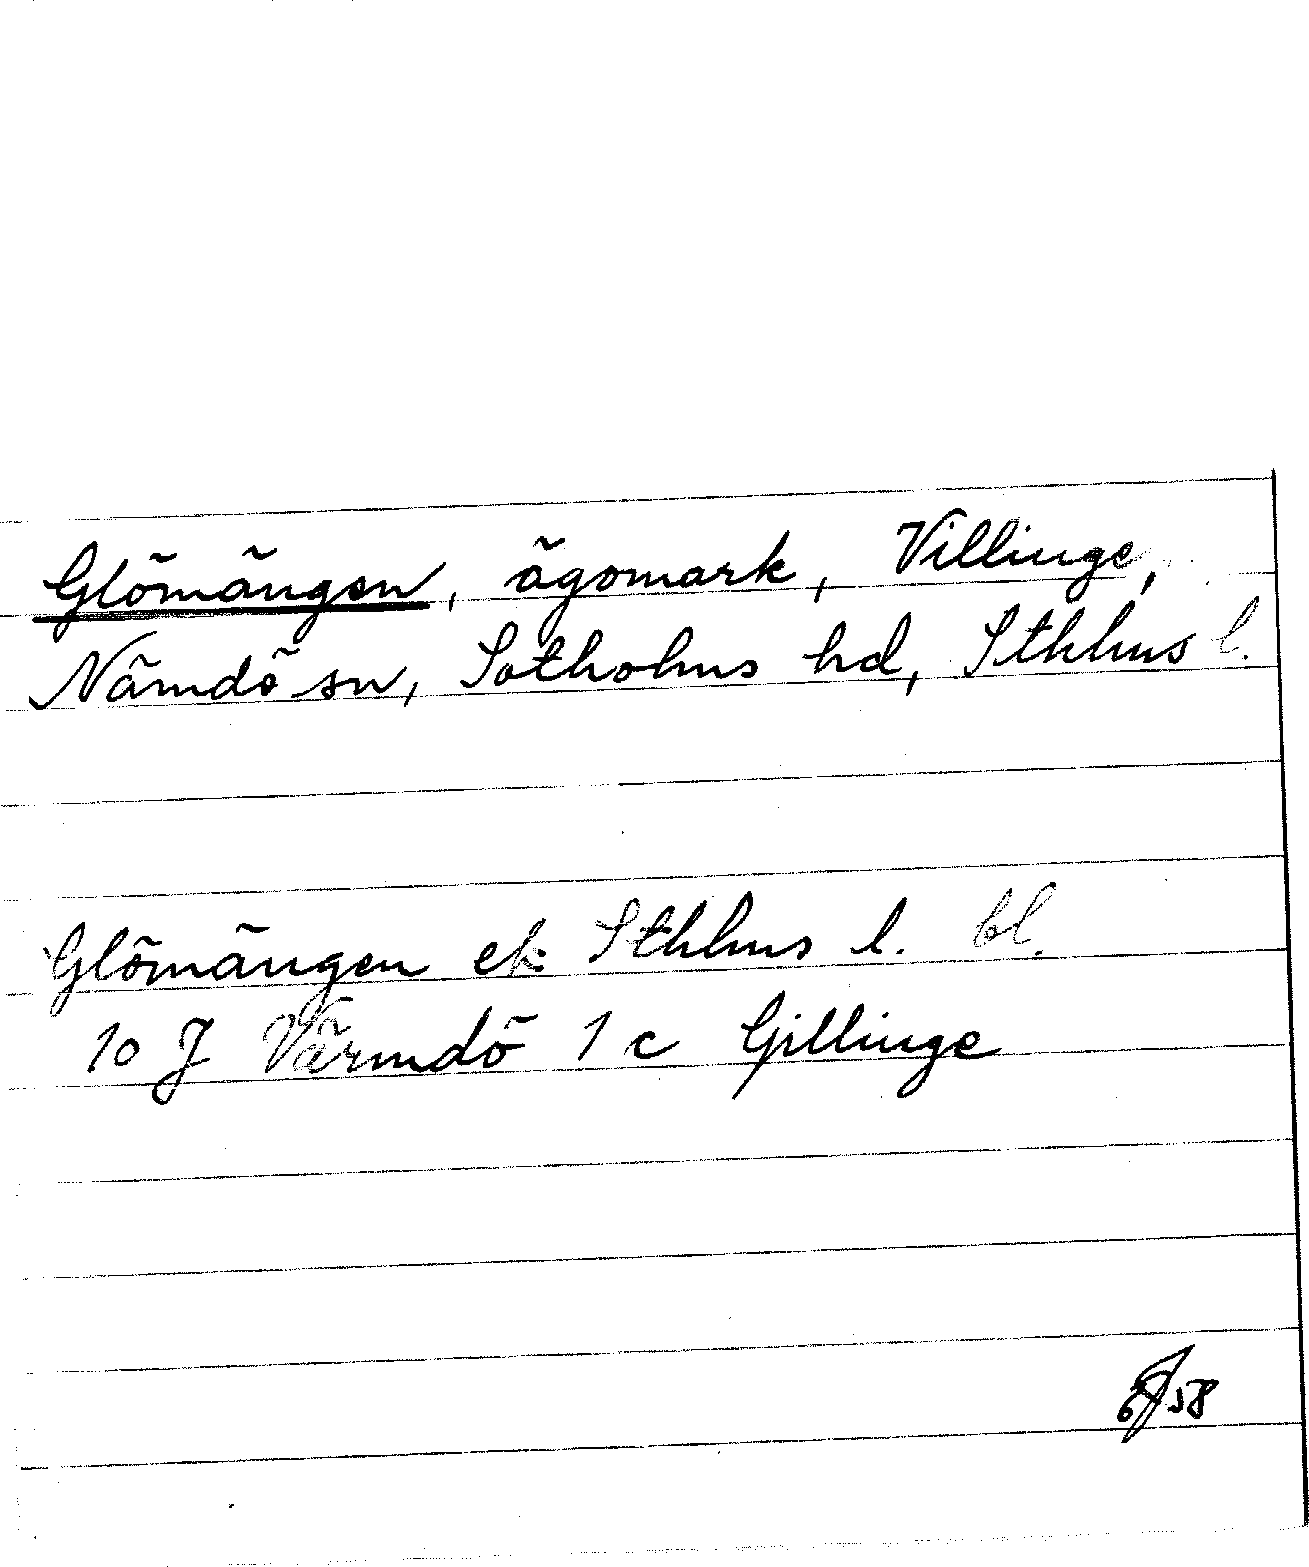 Glömängen, ägomark, Villinge,
Nämdö sn, Sotholms hd, Sthlms l.
Glömängen ek Sthlms l. bl.
10 J Värmdö 1 c Gillinge
58